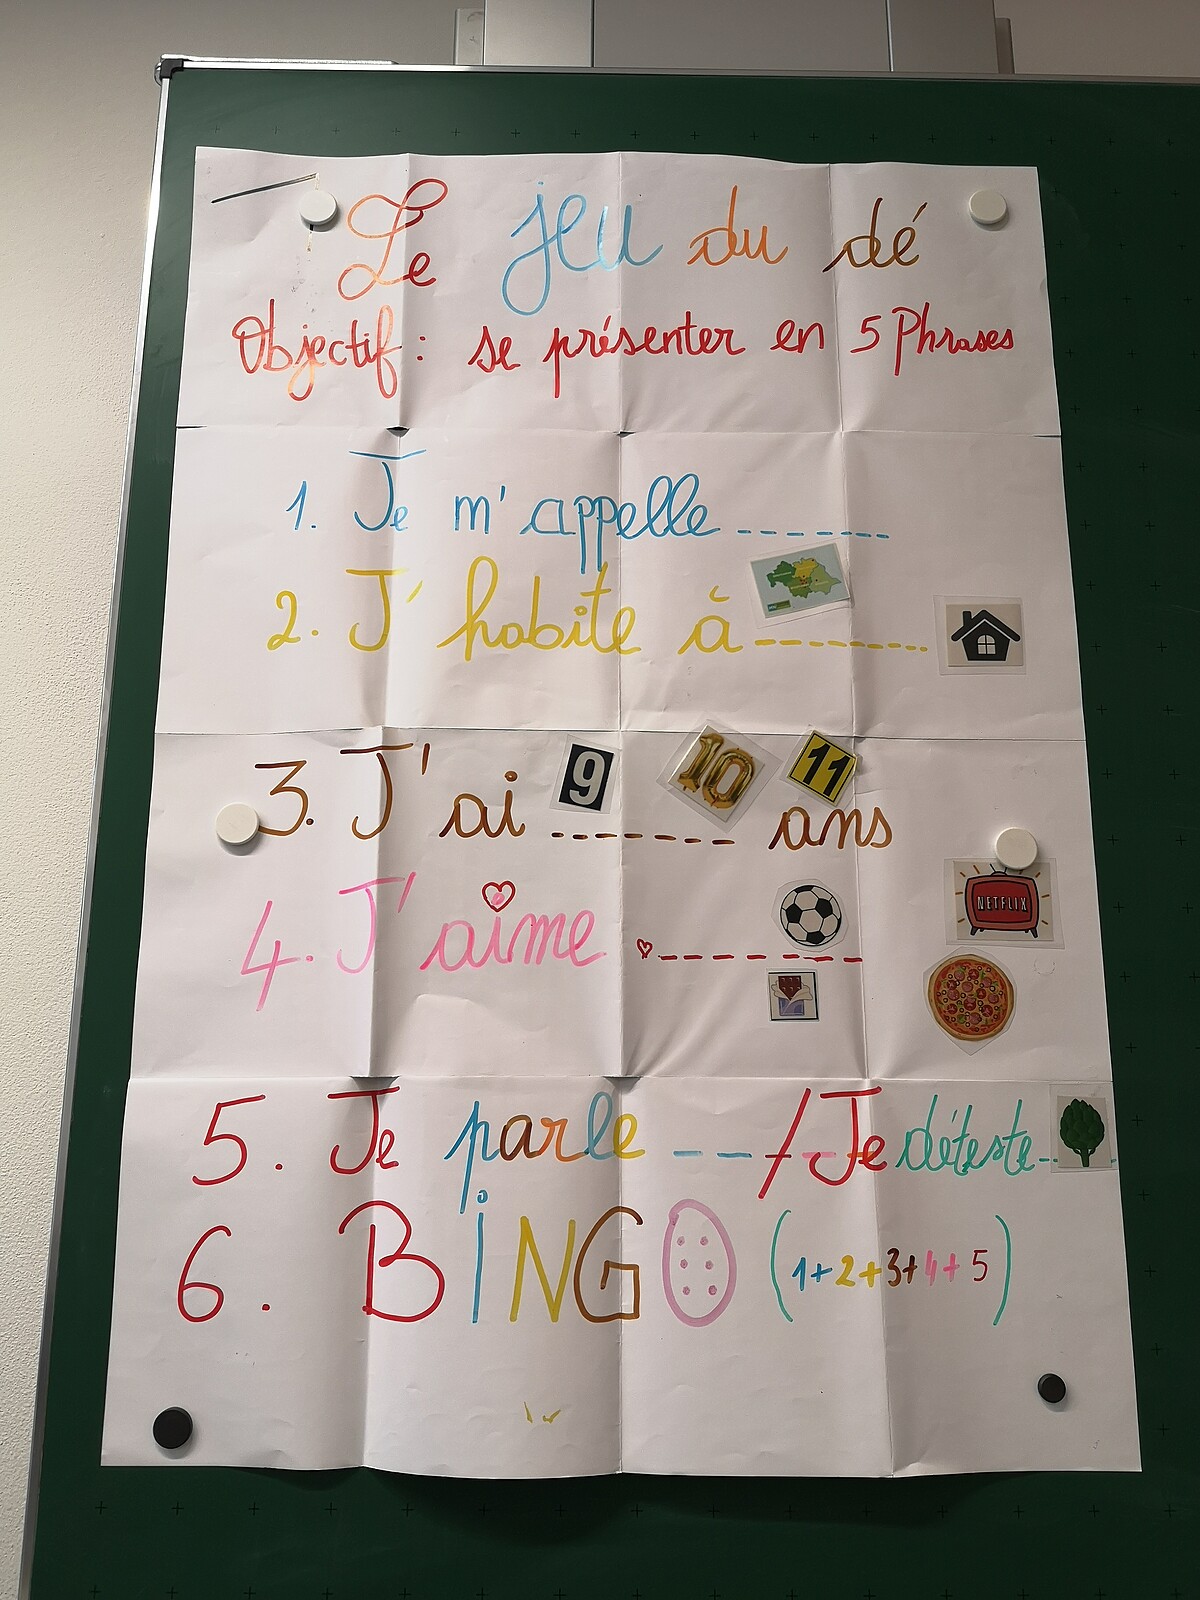 Le jeu du dé
Objectif : se présenter en 5 Phrases
1. Je m'appelle -------
2. J'habite à ---------
9 10 11
3. J'ai ------- ans
NETFLIX
4. J'aime --------
5. Je parle ---- / Je déteste...
6. BINGO (1+2+3+4+5)